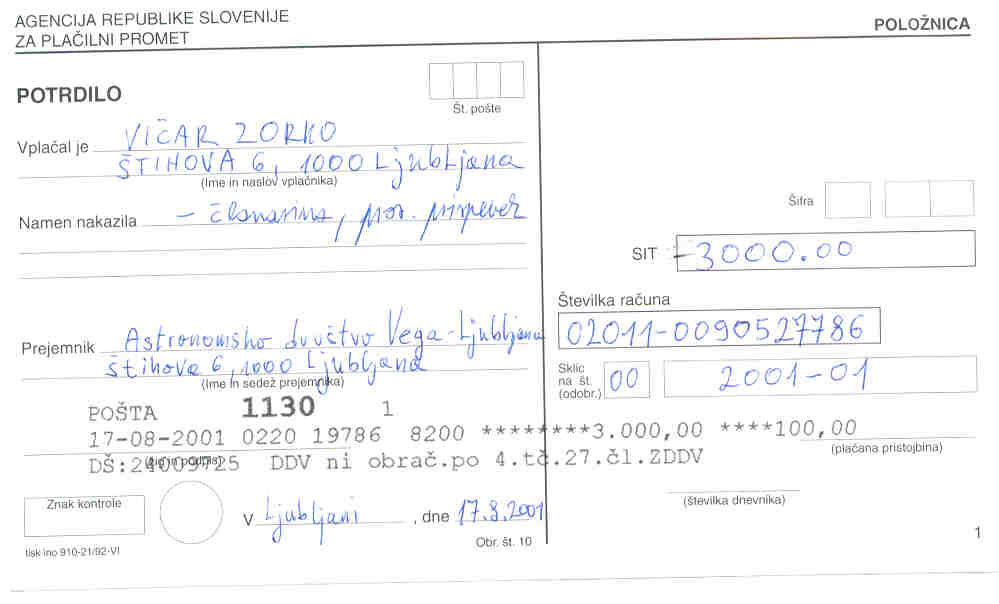 AGENCIJA REPUBLIKE SLOVENIJE
ZA PLAČILNI PROMET
POLOŽNICA
POTRDILO
Št. pošte
Vplačal je VIČAR ZORKO
ŠTIHOVA 6, 1000 Ljubljana
(Ime in naslov vplačnika)
Šifra
Namen nakazila – članarina, por. prispevek
SIT - 3000.00
Številka računa
02011-0090527786
Prejemnik Astronomsko društvo Vega-Ljubljana
štihova 6, 1000 Ljubljana
(Ime in sedež prejemnika)
Sklic
na št.
(odobr.) 00 2001-01
POŠTA 1130 1
17-08-2001 0220 19786 8200 ********3.000,00 ****100,00
(plačana pristojbina)
DŠ:24009725 DDV ni obrač.po 4.tč.27.čl.ZDDV
(žig in podpis)
Znak kontrole
(številka dnevnika)
V Ljubljani , dne 17.8.2001
Obr. št. 10
1
tisk ino 910-21/92-VI